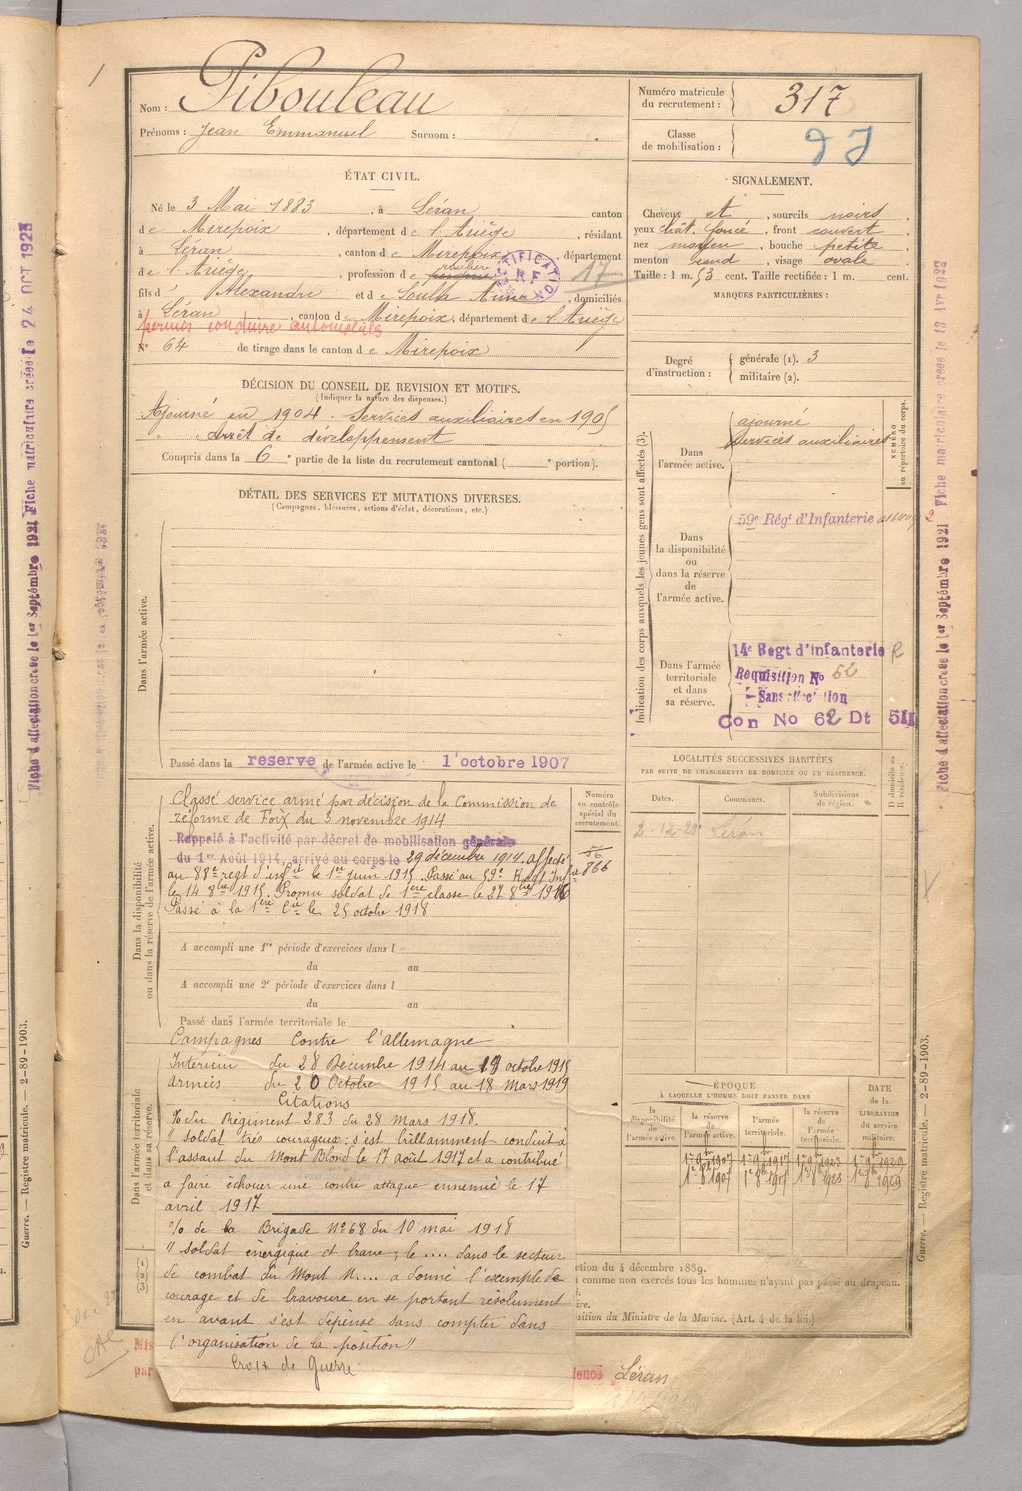 Nom : Pibouleau
Prénoms : Jean Emmanuel Surnom :
Numéro matricule du recrutement : 317
Classe de mobilisation :
ÉTAT CIVIL.
Né le 3 Mai 1883, à Léran canton
de Mirepoix, département de l'Ariège, résidant
à Léran, canton de Mirepoix, département
de l'Ariège, profession de
17
fils d' Alexandre et de Soulla Anne, domiciliés
à Léran, canton de Mirepoix, département de l'Ariège
permis conduire automobiles
N° 64 de tirage dans le canton de Mirepoix
SIGNALEMENT.
Cheveux et, sourcils noirs,
yeux chât. foncé, front couvert,
nez moyen, bouche petite,
menton rond, visage ovale
Taille : 1 m. 53 cent. Taille rectifiée : 1 m. cent.
MARQUES PARTICULIÈRES :
Degré d'instruction : générale (1). 3
militaire (2).
DÉCISION DU CONSEIL DE REVISION ET MOTIFS.
(Indiquer la nature des dispenses.)
Ajourné en 1904. Services auxiliaires en 1905
Arrêt de développement
Compris dans la 6e partie de la liste du recrutement cantonal ( e portion).
DÉTAIL DES SERVICES ET MUTATIONS DIVERSES.
(Campagnes, blessures, actions d'éclat, décorations, etc.)
Dans l'armée active.
Passé dans la reserve de l'armée active le 1er octobre 1907
Indication des corps auxquels les jeunes gens sont affectés (3).
NUMÉRO au répertoire du corps.
Dans l'armée active.
ajourné
services auxiliaires
Dans la disponibilité ou dans la réserve de l'armée active.
59e Régt d'Infanterie
Dans l'armée territoriale et dans sa réserve.
14e Regt d'infanterie
Requisition No 62
Sans affectation
Con No 62 Dt 511
LOCALITÉS SUCCESSIVES HABITÉES
PAR SUITE DE CHANGEMENTS DE DOMICILE OU DE RÉSIDENCE.
Dates. Communes. Subdivisions de région. D domicile ou R résidence.
Léran
Dans la disponibilité ou dans la réserve de l'armée active.
Numéro au contrôle spécial du recrutement.
Classé service armé par décision de la Commission de
réforme de Foix du 3 novembre 1914
Rappelé à l'activité par décret de mobilisation générale
du 1er Août 1914, arrivé au corps le 29 décembre 1914, affecté
au 88e regt d'infie le 1er juin 1915. Passé au 59e Regt Infie
le 14 8bre 1915. Promu soldat de 1ère classe le 27 8bre 1916
Passé à la 1ère Cie le 25 octobre 1918
866
A accompli une 1re période d'exercices dans l
du au
A accompli une 2e période d'exercices dans l
du au
Passé dans l'armée territoriale le
Dans l'armée territoriale et dans sa réserve.
Campagnes Contre l'allemagne
Interieur du 28 Décembre 1914 au 19 octobre 1915
armées du 20 Octobre 1915 au 18 Mars 1919
Citations
% du Régiment 283 du 28 Mars 1918.
" soldat très courageux : s'est brillamment conduit à
l'assaut du Mont Blond le 17 août 1917 et a contribué
a faire échouer une contre attaque ennemie le 17
avril 1917
% de la Brigade N° 68 du 10 mai 1918
" soldat énergique et brave, le .... dans le secteur
de combat du Mont K.... a donné l'exemple de
courage et de bravoure en se portant résolument
en avant s'est dépensé sans compter dans
l'organisation de la position"
Croix de Guerre
ÉPOQUE
À LAQUELLE L'HOMME DOIT PASSER DANS
la disponibilité de l'armée active. la réserve de l'armée active. l'armée territoriale. la réserve de l'armée territoriale.
DATE de la LIBÉRATION du service militaire.
ction du 4 décembre 1889.
comme non exercés tous les hommes n'ayant pas passé au drapeau.
sition du Ministre de la Marine. (Art. 4 de la loi.)
Léran
Fiche d'affectation créée le 1er Septembre 1921 Fiche matriculaire créée le 24 OCT 1923
Fiche d'affectation créée le 1er Septembre 1921 Fiche matriculaire créée le 13 Avr 1923
Guerre. — Registre matricule. — 2-89-1903.
Guerre. — Registre matricule. — 2-89-1903.